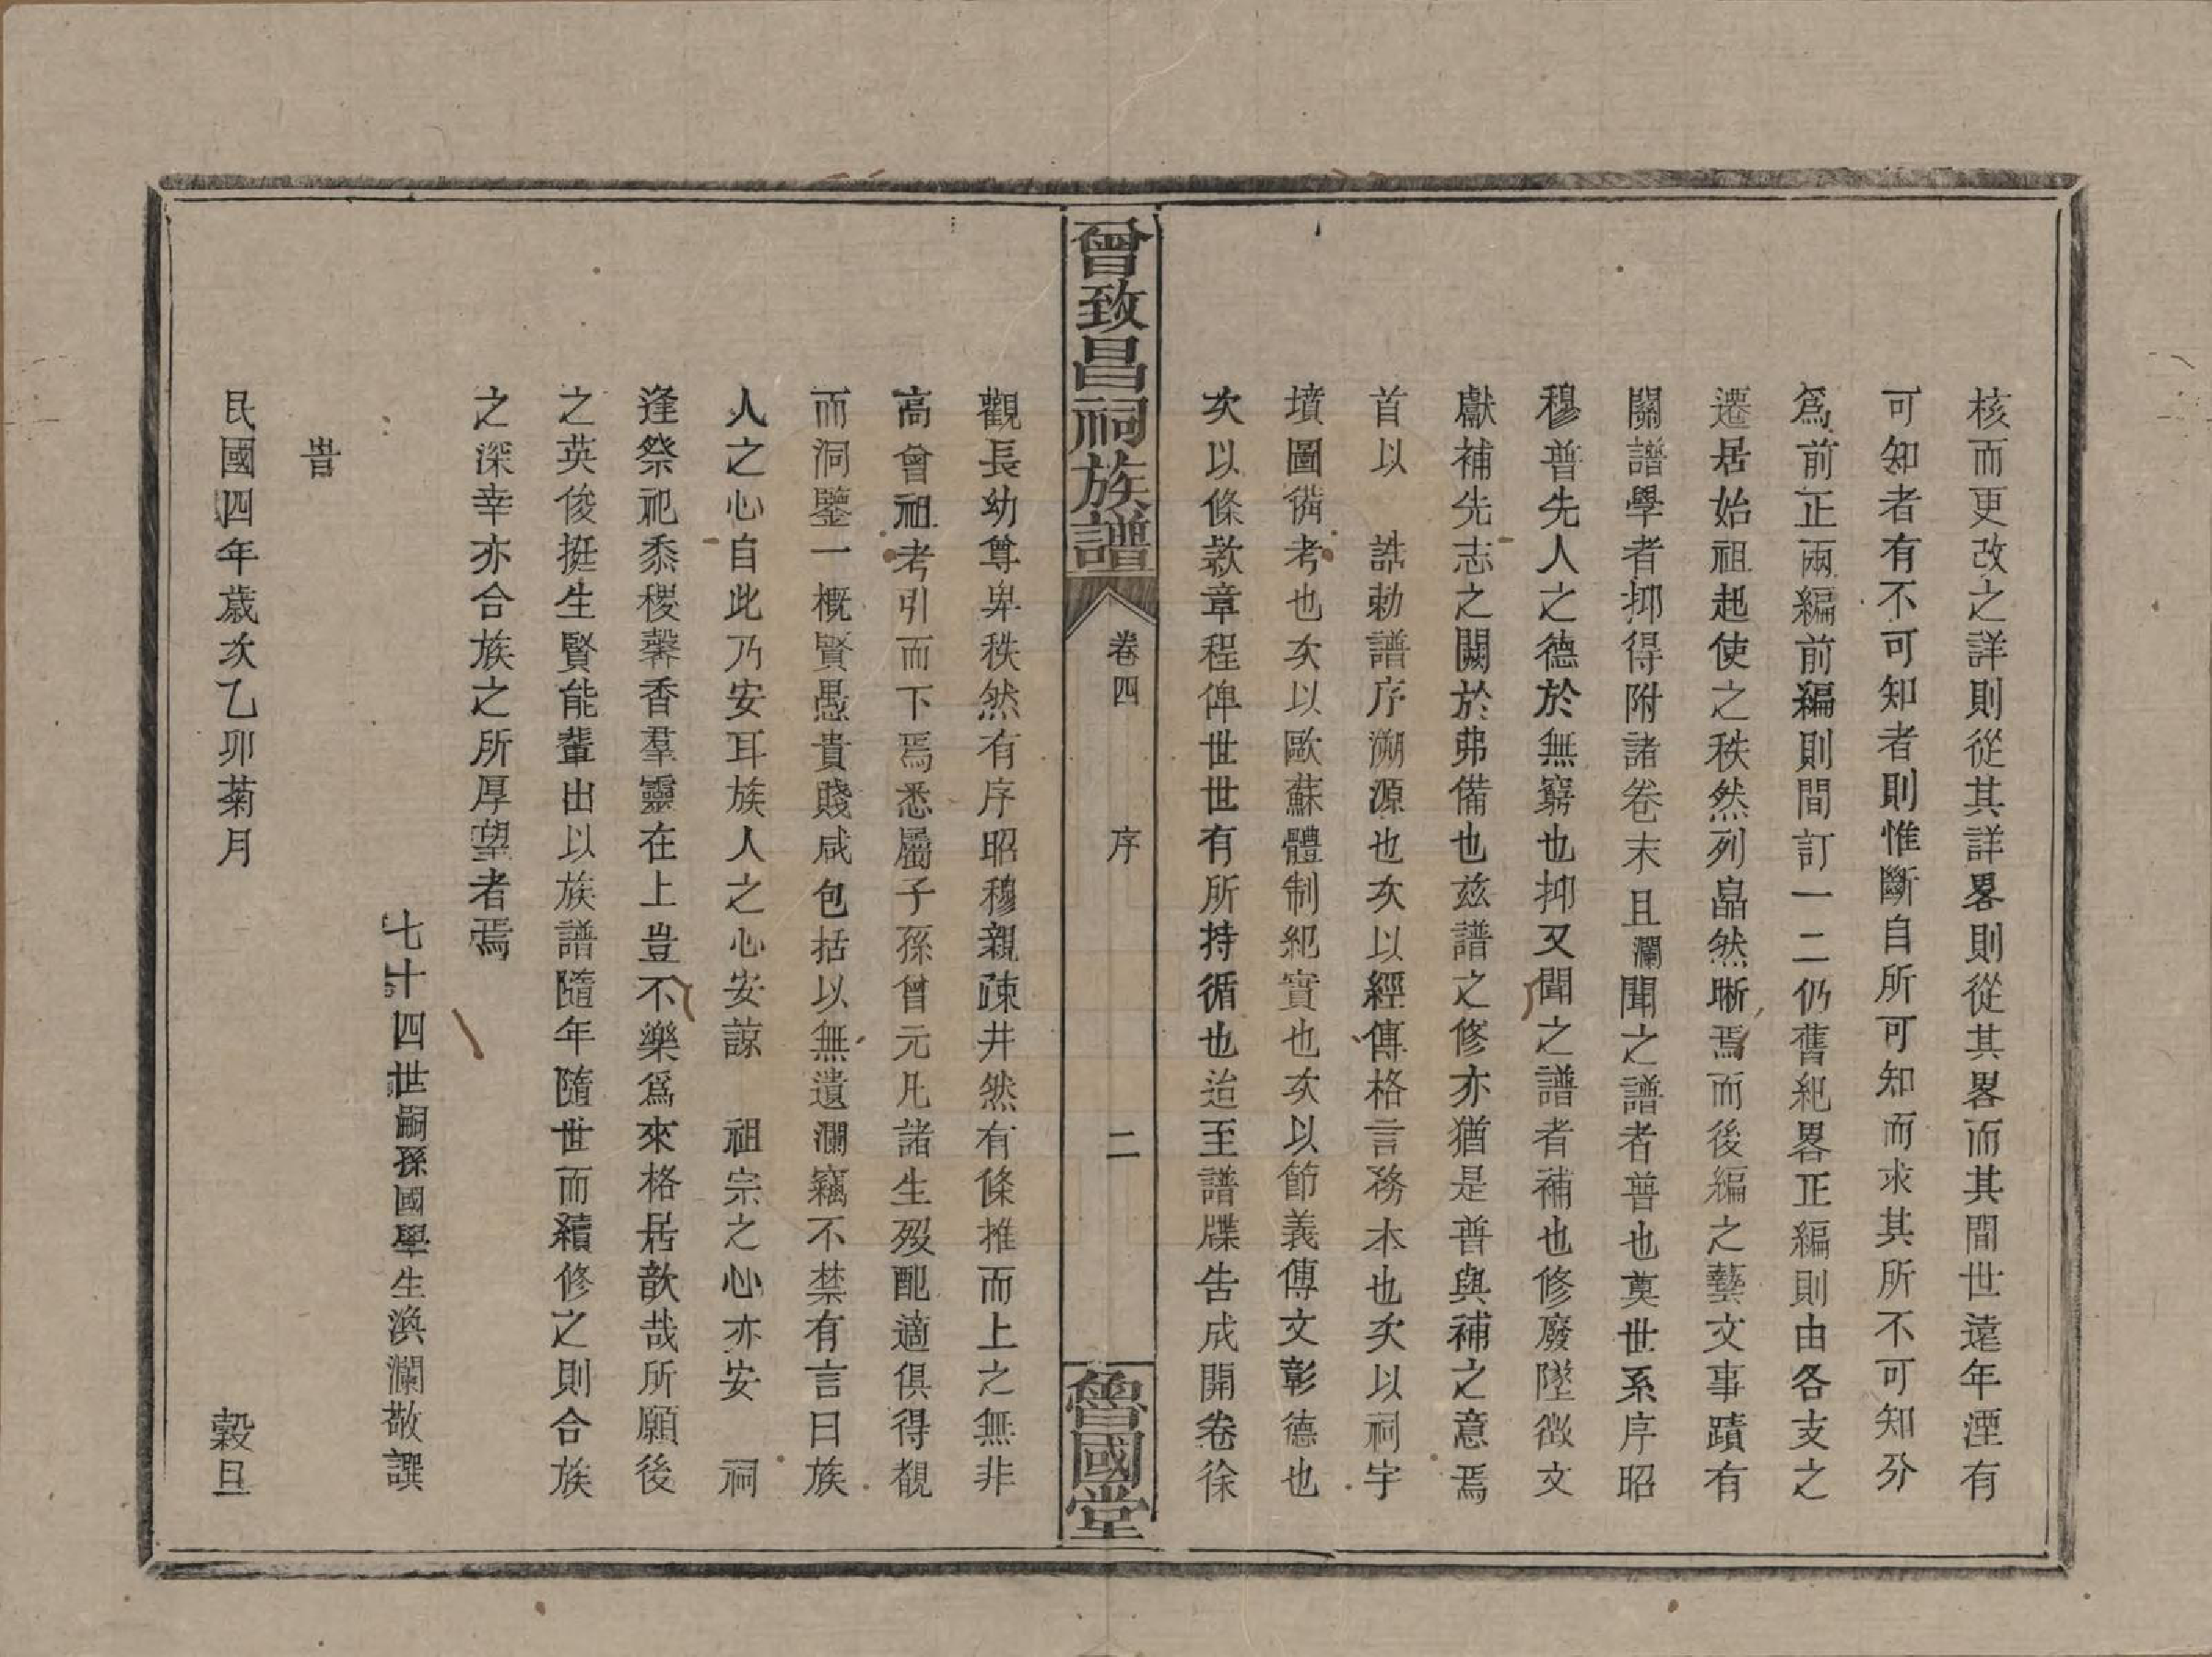 核而更改之詳則從其詳畧則從其畧而其間世遠年湮有
可知者有不可知者則惟斷自所可知而求其所不可知分
爲前正兩編前編則間訂一二仍舊紀畧正編則由各支之
遷居始祖起使之秩然列皛然晰焉而後編之藝文事蹟有
關譜學者抑得附諸卷末且瀾聞之譜者普也奠世系序昭
穆普先人之德於無窮也抑又聞之譜者補也修廢墜徵文
獻補先志之闕於弗備也兹譜之修亦猶是普與補之意焉
首以　誥勅譜序溯源也次以經傳格言務本也次以祠宇
墳圖備考也次以歐蘇體制紀實也次以節義傳文彰德也
次以條欵章程俾世世有所持循也迨至譜牒告成開卷徐
曾致昌祠族譜　卷四　序　二　魯國堂
觀長幼尊卑秩然有序昭穆親疎井然有條推而上之無非
高曾祖考引而下焉悉屬子孫曾元凡諸生殁配適俱得覩
而洞鑒一概賢愚貴賤咸包括以無遺瀾竊不禁有言曰族
人之心自此乃安耳族人之心安諒　祖宗之心亦安　祠
逢祭祀黍稷馨香羣靈在上豈不樂爲來格居歆哉所願後
之英俊挺生賢能輩出以族譜隨年隨世而續修之則合族
之深幸亦合族之所厚望者焉
七十四世嗣孫國學生渙瀾敬譔
旹
民國四年歲次乙卯菊月　穀旦